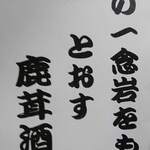 の一念岩をも
とおす
鹿茸酒